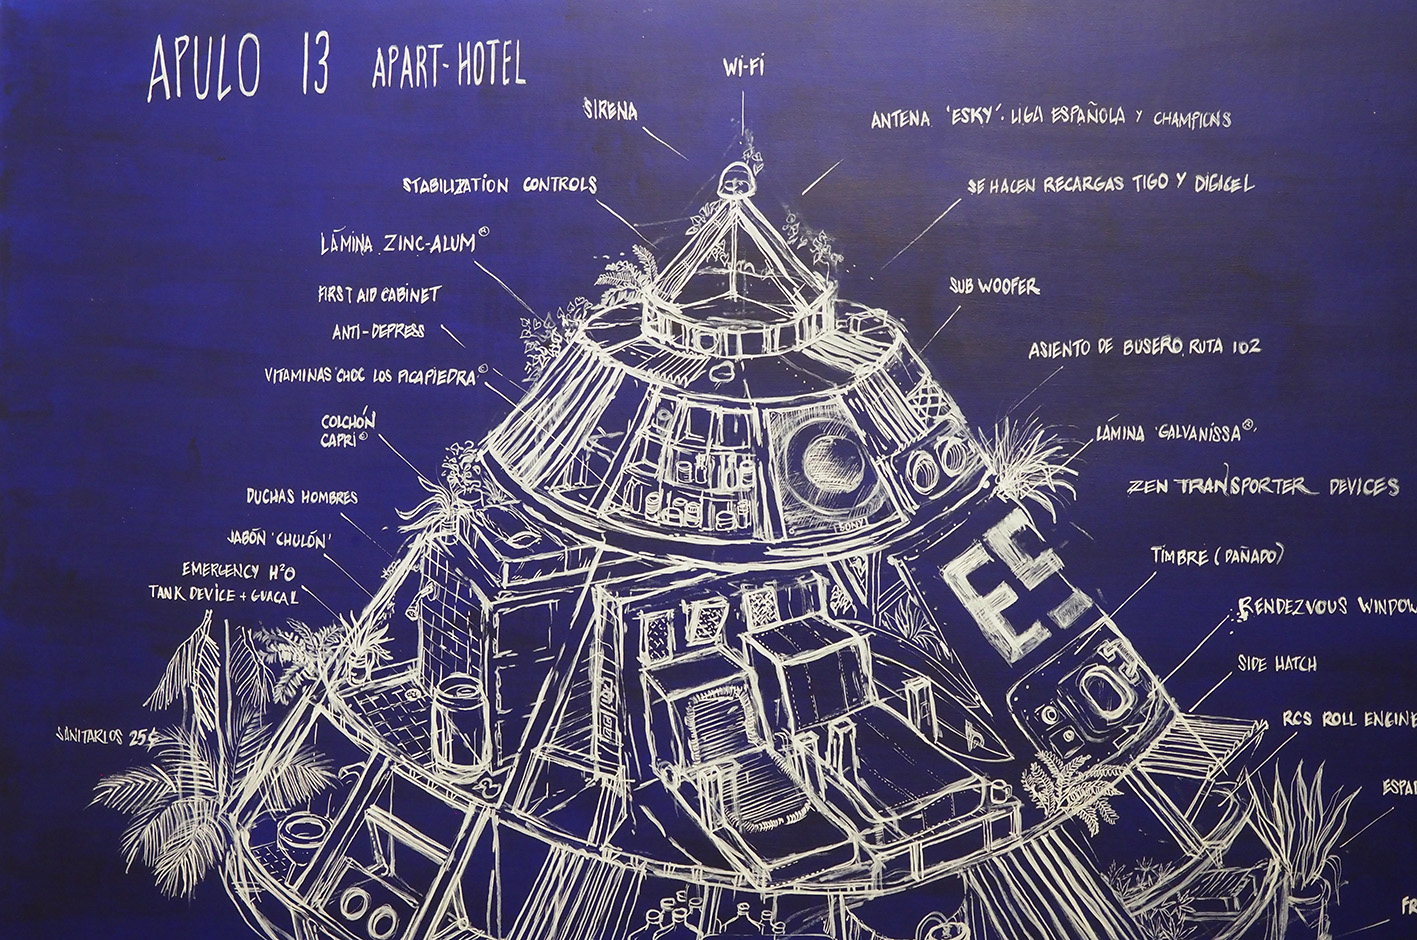 APULO 13 APART-HOTEL
WI-FI
SIRENA
ANTENA 'ESKY'. LIGA ESPAÑOLA Y CHAMPIONS
STABILIZATION CONTROLS
SE HACEN RECARGAS TIGO Y DIGICEL
LÁMINA ZINC-ALUM®
FIRST AID CABINET
SUB WOOFER
ANTI-DEPRESS
ASIENTO DE BUSERO RUTA 102
VITAMINAS 'CHOC LOS PICAPIEDRA'®
COLCHÓN
CAPRI®
LÁMINA 'GALVANISSA®'
DUCHAS HOMBRES
ZEN TRANSPORTER DEVICES
SONY
JABÓN 'CHULÓN'
TIMBRE (DAÑADO)
EMERGENCY H²O
TANK DEVICE + GUACAL
RENDEZVOUS WINDOW
SIDE HATCH
SANITARIOS 25¢
RCS ROLL ENGINE
ESPA
FR